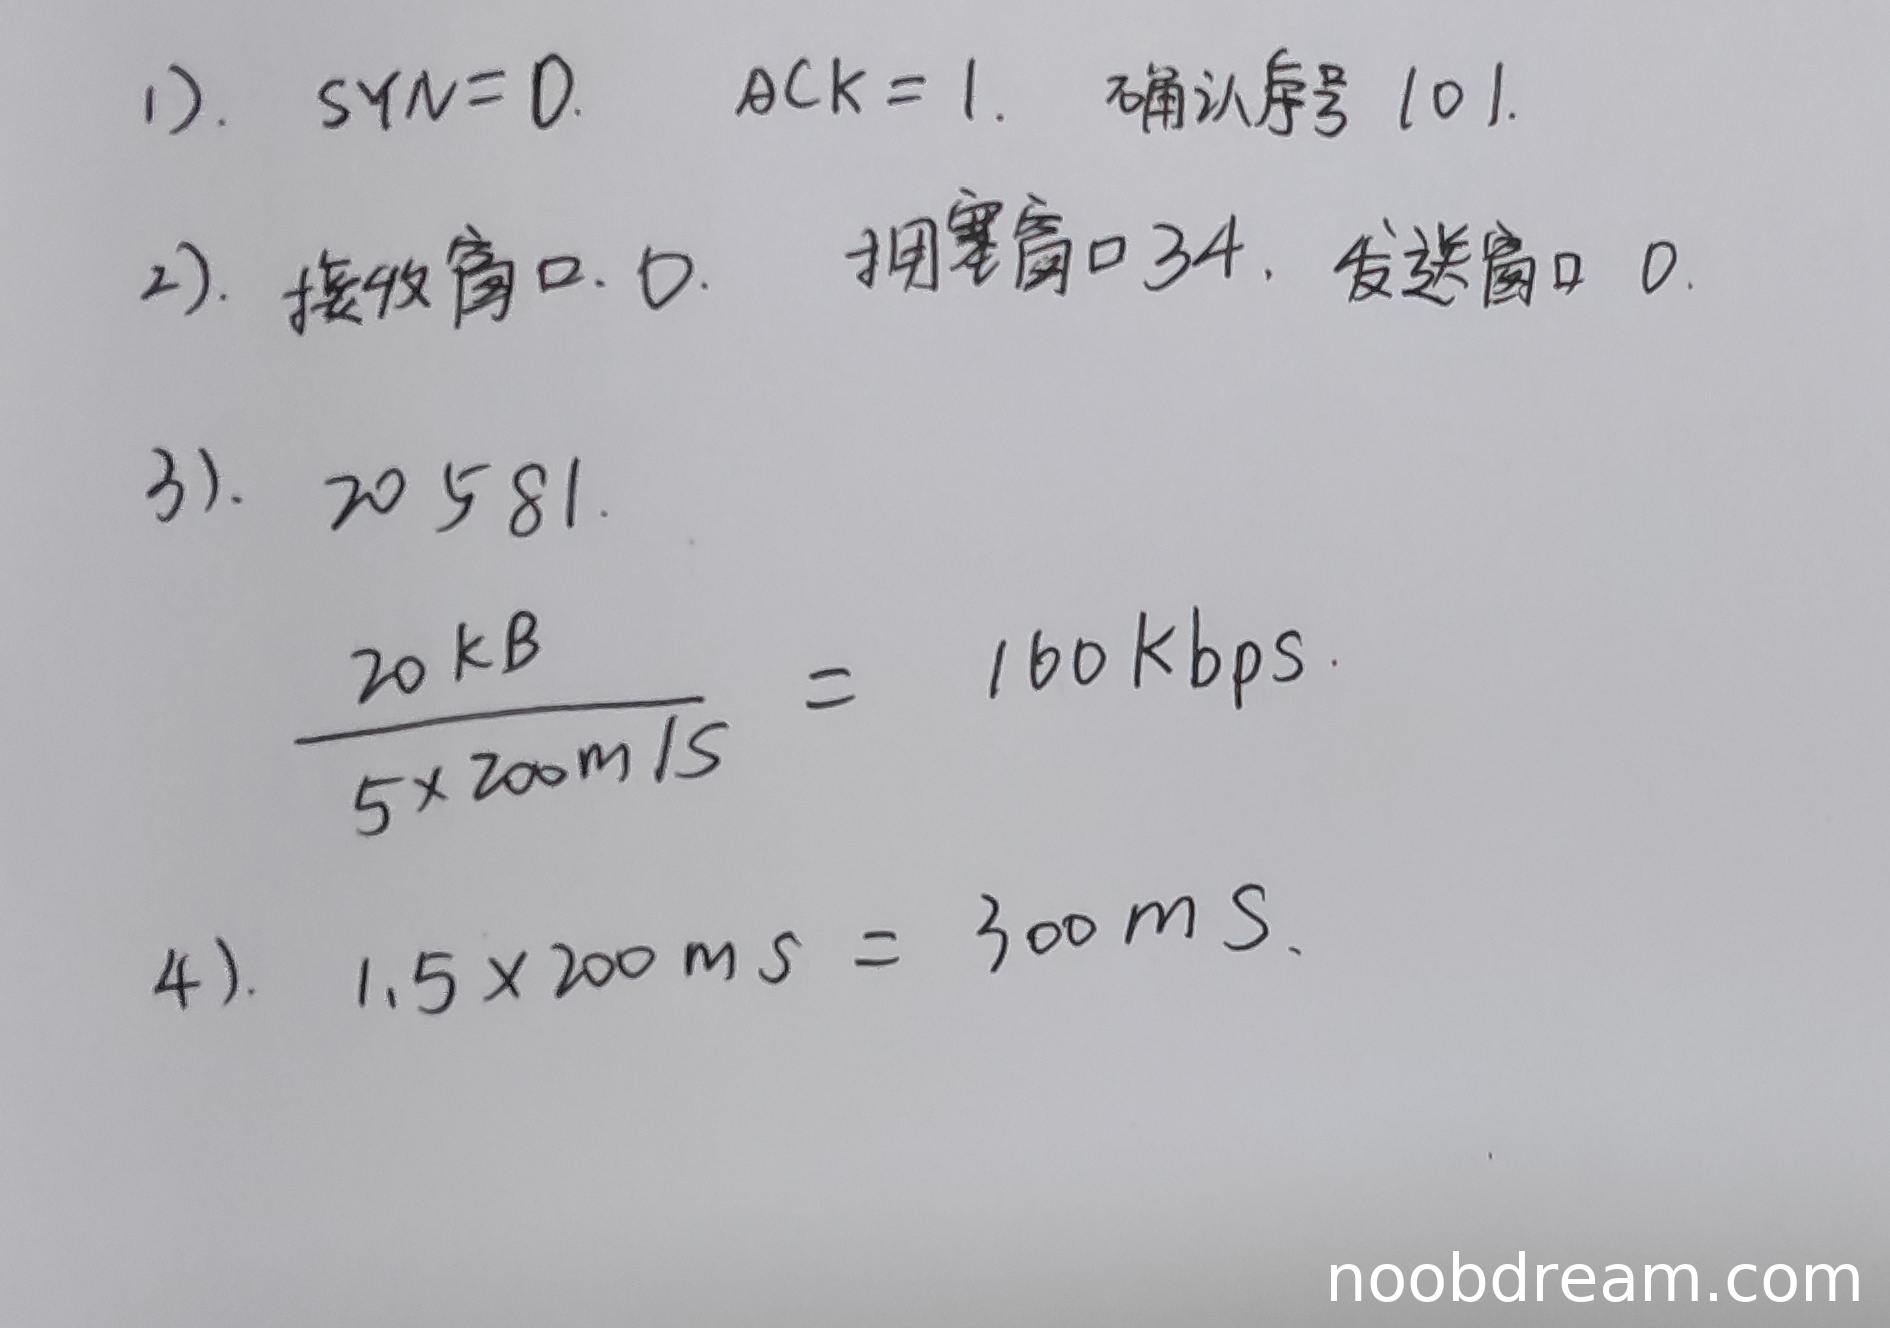 1). SYN=0. ACK=1. 确认序号 101.
2). 接收窗口. 0. 拥塞窗口34. 发送窗口 0.
3). 20581.
20KB
= 160Kbps.
5×200m/s
4). 1.5×200ms = 300ms.
noobdream.com